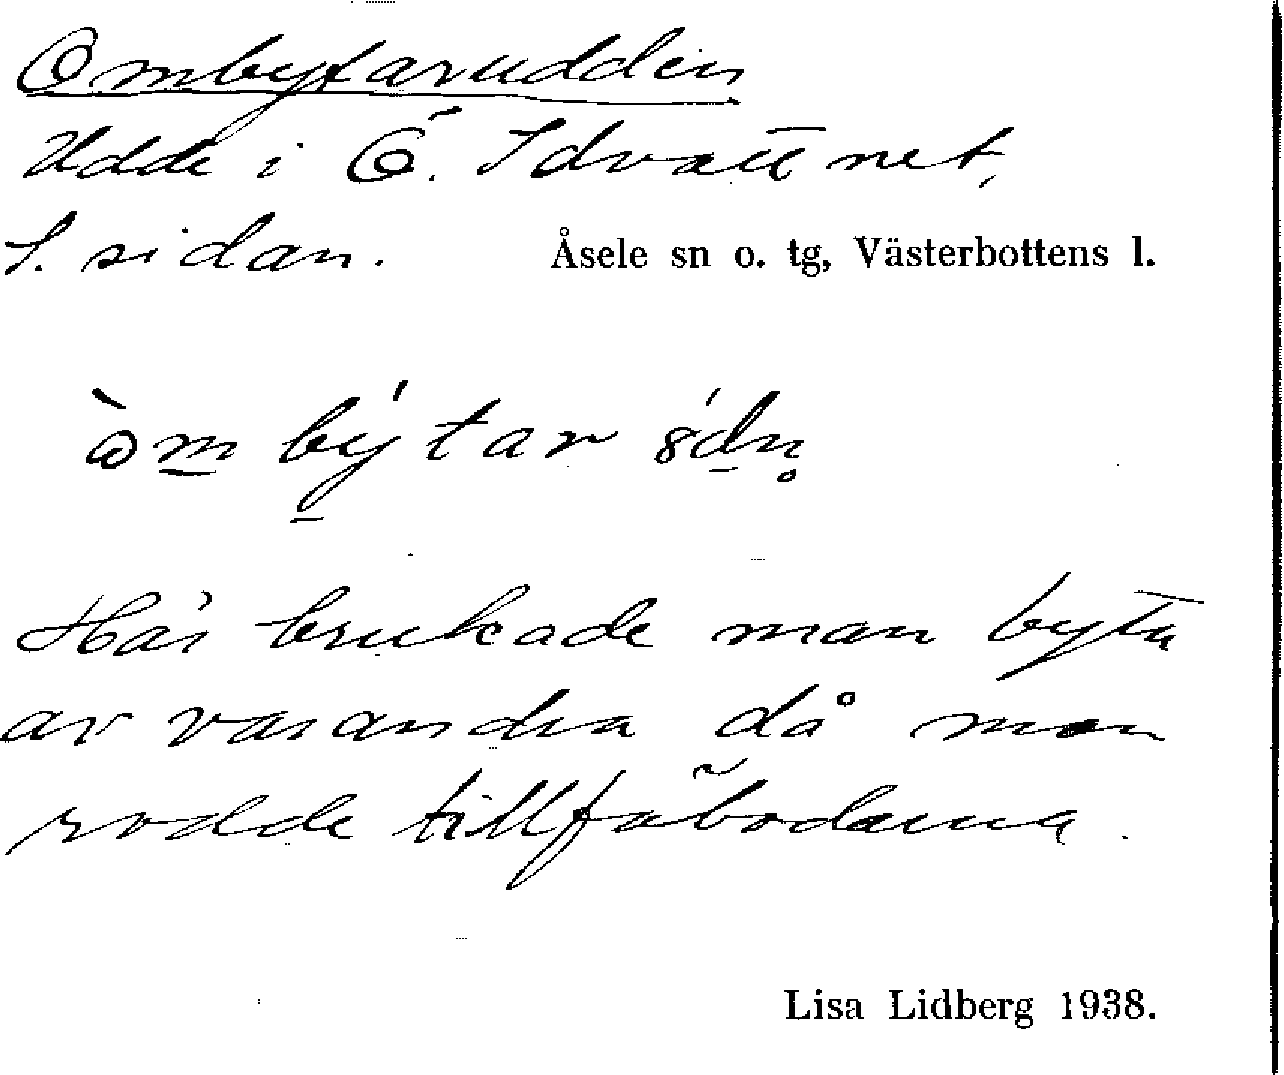 Ombytarudden
Udde i Ö. Idvattnet,
S. sidan. Åsele sn o. tg, Västerbottens l.
Här brukade man byta
av varandra då man
rodde till fäbodarna.
Lisa Lidberg 1938.